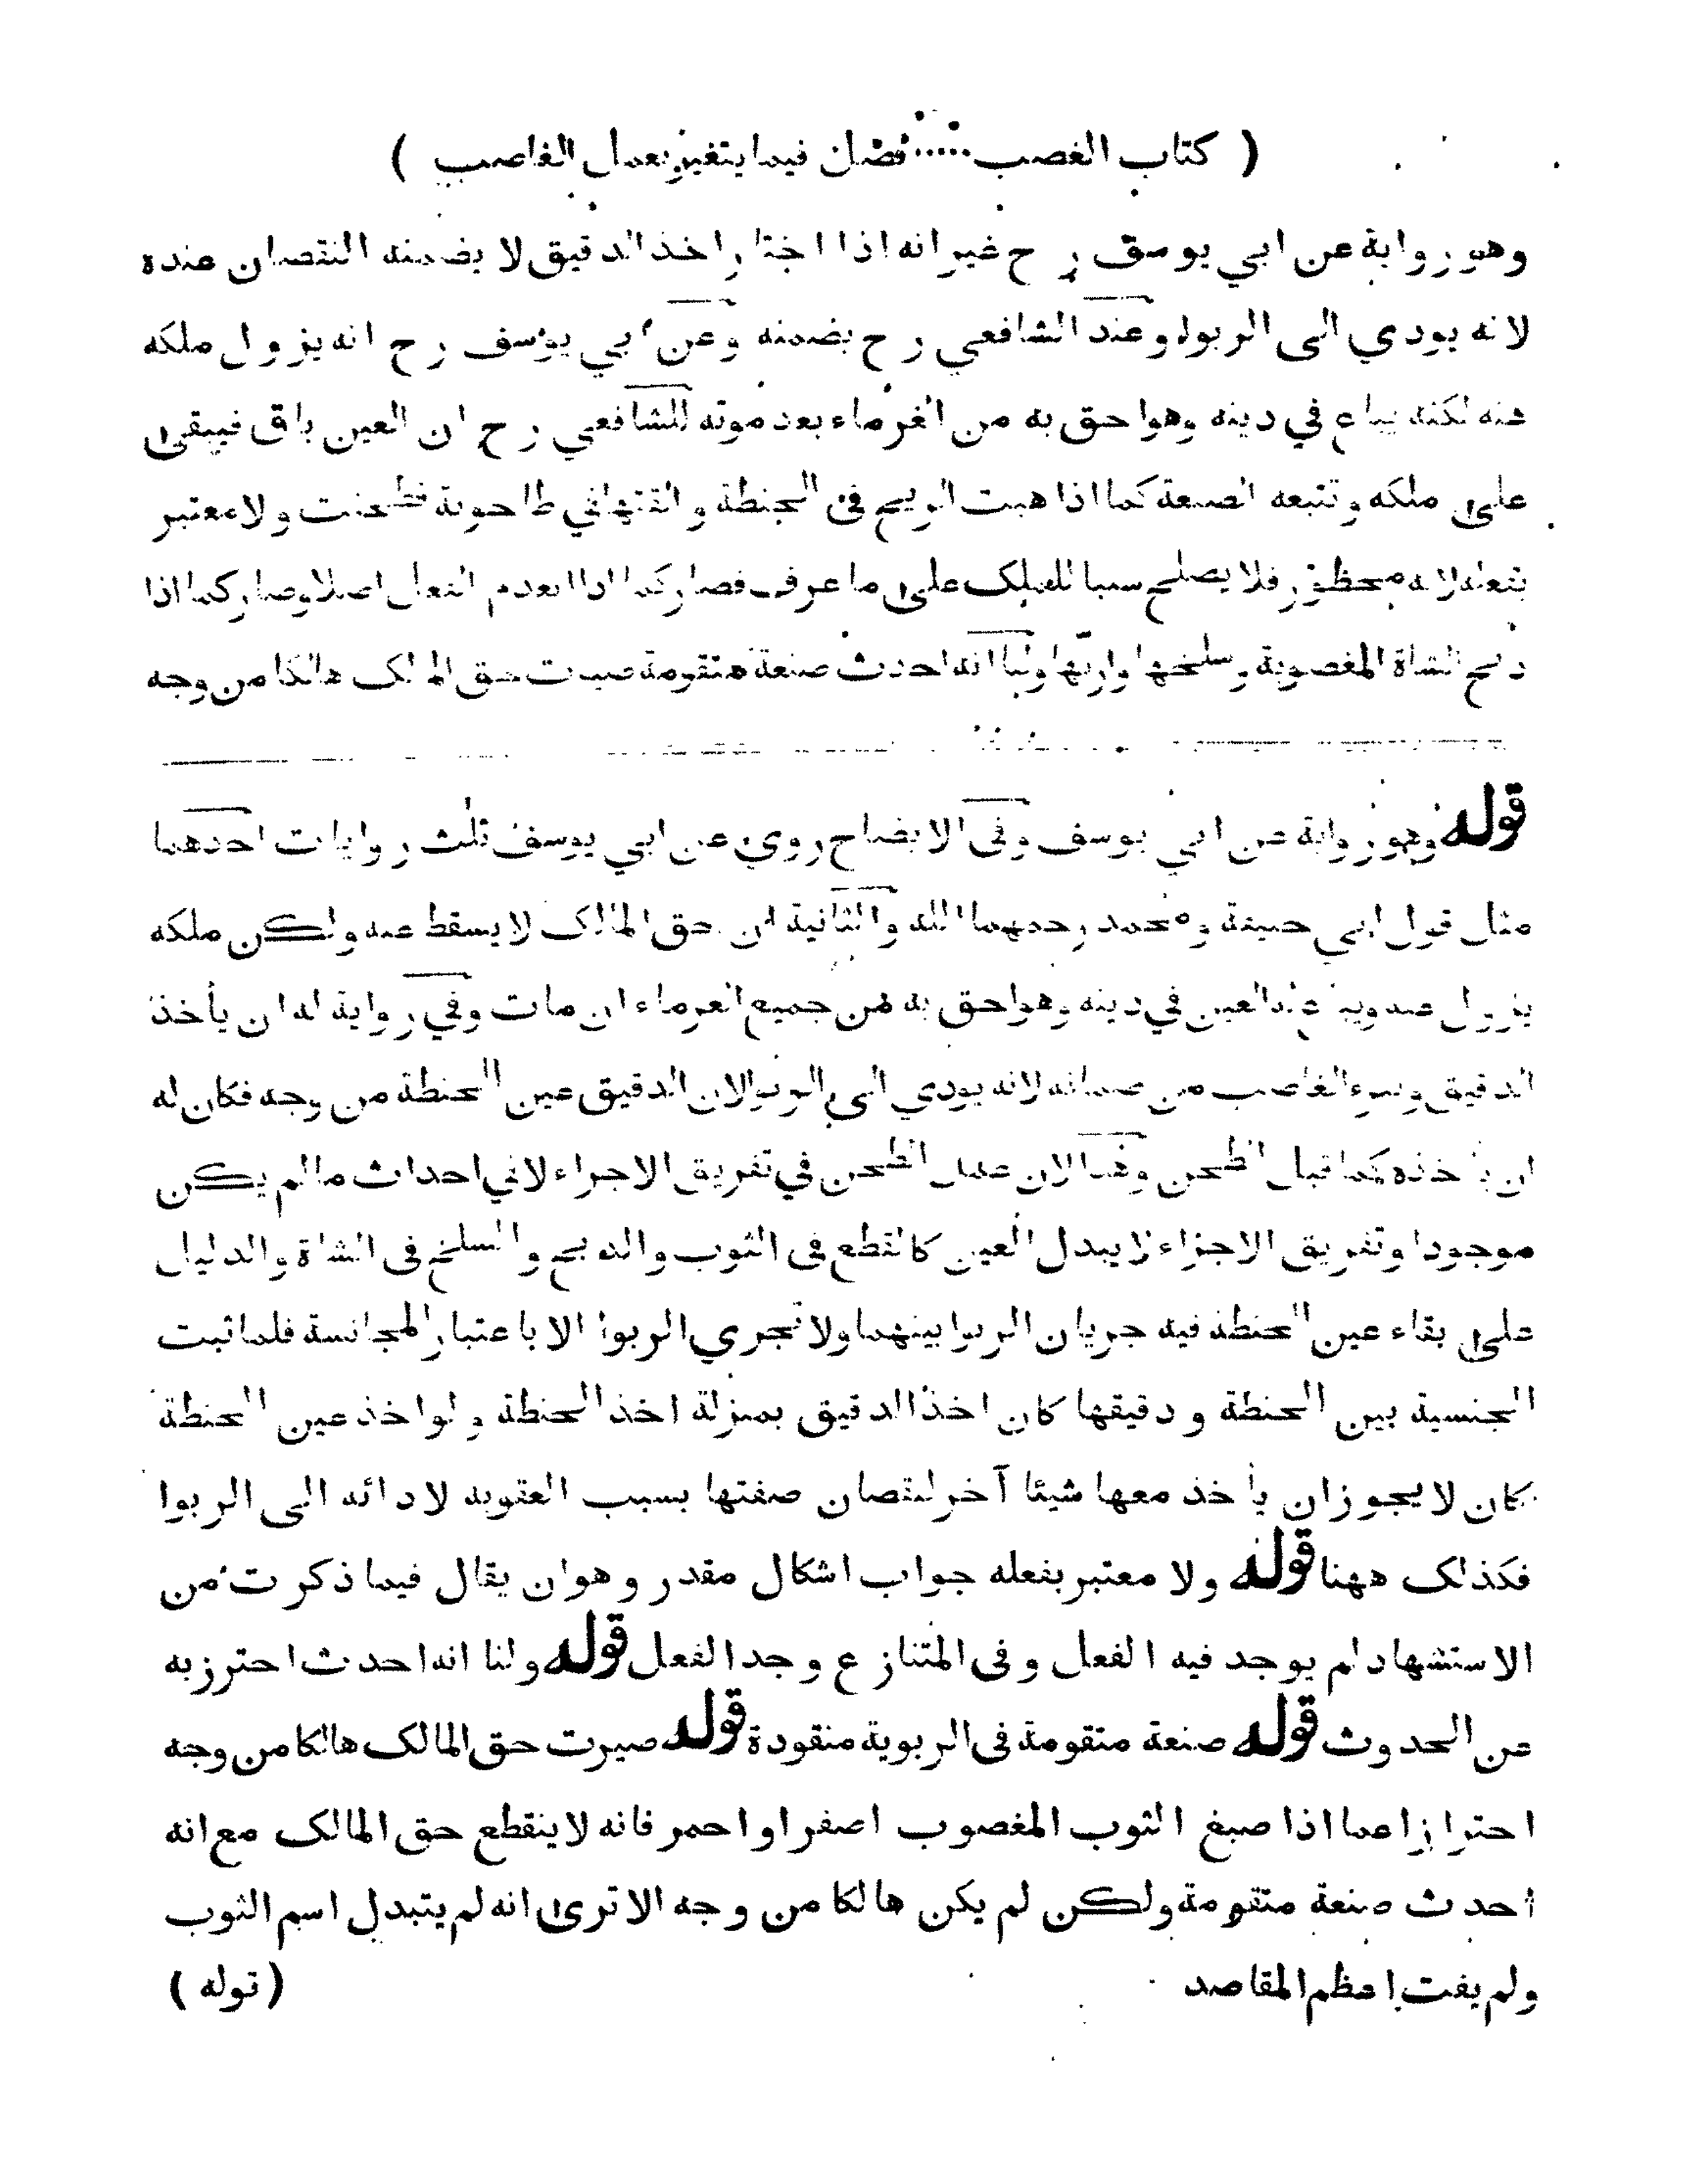 ( كتاب الغصب ..... فصل فيما يتغير بعمل الغاصب )
وهو رواية عن ابي يوسف رح غير انه اذا اختار اخذ الدقيق لا يضمنه النقصان عنده
لانه يودي الى الربوا وعند الشافعي رح يضمنه وعن ابي يوسف رح انه يزول ملكه
عنه لكنه يباع في دينه وهو احق به من الغرماء بعد موته للشافعي رح ان العين باق فيبقى
على ملكه وتتبعه الصنعة كما اذا هبت الريح في الحنطة والقتها في طاحونة فطحنت ولا معتبر
بفعله لانه محظور فلا يصلح سببا للملك على ما عرف فصار كما اذا انعدم الفعل اصلا وصار كما اذا
ذبح الشاة المغصوبة وسلخها واربها ولنا انه احدث صنعة متقومة صيرت حق المالك هالكا من وجه
قوله وهو رواية عن ابي يوسف وفى الايضاح روي عن ابي يوسف ثلث روايات احدهما
مثل قول ابي حنيفة ومحمد رحمهما الله والثانية ان حق المالك لا يسقط عنه ولكن ملكه
يزول عنه ويباع له العين في دينه وهو احق به من جميع الغرماء ان مات وفي رواية له ان يأخذ
الدقيق ويبرء الغاصب من ضمانه لانه يودي الى الربوا لان الدقيق عين الحنطة من وجه فكان له
ان يأخذه كما قبل الطحن وهذا لان عمل الطحن في تفريق الاجزاء لا في احداث ما لم يكن
موجودا وتفريق الاجزاء لا يبدل العين كالقطع فى الثوب والذبح والسلخ فى الشاة والدليل
على بقاء عين الحنطة فيه جريان الربوا بينهما ولا تجري الربوا الا باعتبار المجانسة فلما ثبت
الجنسية بين الحنطة ودقيقها كان اخذ الدقيق بمنزلة اخذ الحنطة ولو اخذ عين الحنطة
كان لا يجوز ان يأخذ معها شيئا آخر لنقصان صفتها بسبب العقوبة لادائه الى الربوا
فكذلك ههنا قوله ولا معتبر بفعله جواب اشكال مقدر وهو ان يقال فيما ذكرت من
الاستشهاد لم يوجد فيه الفعل وفى المتنازع وجد الفعل قوله ولنا انه احدث احترز به
عن الحدوث قوله صنعة متقومة فى الربوية منقودة قوله صيرت حق المالك هالكا من وجه
احترازا عما اذا صبغ الثوب المغصوب اصفر او احمر فانه لا ينقطع حق المالك مع انه
احدث صنعة متقومة ولكن لم يكن هالكا من وجه الا ترى انه لم يتبدل اسم الثوب
ولم يفت اعظم المقاصد
( قوله )